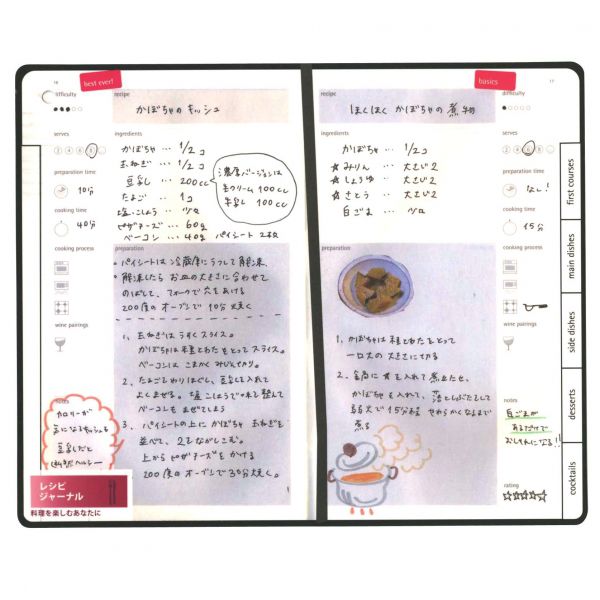 16
best ever!
difficulty
recipe
かぼちゃのキッシュ
serves
2 4 6 8 ...
ingredients
かぼちゃ … 1/2コ
玉ねぎ … 1/2コ
豆乳 … 200cc
たまご … 1コ
塩・こしょう … 少々
ピザチーズ … 60g
ベーコン … 40g パイシート 2枚
濃厚バージョンは
生クリーム 100cc
牛乳 100cc
preparation time
10分
cooking time
40分
cooking process
wine pairings
preparation
・パイシートは冷蔵庫にうつして解凍。
・解凍したら お皿の大きさに合わせて
のばして、フォークで穴をあける
200度のオーブンで 10分 焼く
1、玉ねぎはうすくスライス。
かぼちゃは種とわたをとってスライス。
ベーコンはこまかくみじん切り。
2、たまごをわりほぐし、豆乳を入れて
よくまぜる。塩こしょうで味を整えて
ベーコンもまぜてしまう
3、パイシートの上に かぼちゃ 玉ねぎを
並べて、2をながしこむ。
上からピザチーズをかける
200度のオーブンで30分焼く。
notes
カロリーが
気になるキッシュも
豆乳だと
断然ヘルシー
レシピ
ジャーナル
料理を楽しむあなたに
basics
17
recipe
ほくほく かぼちゃの煮物
difficulty
ingredients
かぼちゃ … 1/2コ
☆みりん … 大さじ2
☆しょうゆ … 大さじ2
☆さとう … 大さじ2
白ごま … 少々
serves
2 4 6 8 ...
preparation time
なし!
cooking time
15分
cooking process
wine pairings
preparation
1、かぼちゃは種とわたをとって
一口大の大きさに切る
2、全部に☆を入れて煮立たせ、
かぼちゃを入れて、落としぶたをして
弱火で15分程 やわらかくなるまで
煮る
notes
白ごまが
あるだけで
おしゃれになる!!
rating
first courses
main dishes
side dishes
desserts
cocktails